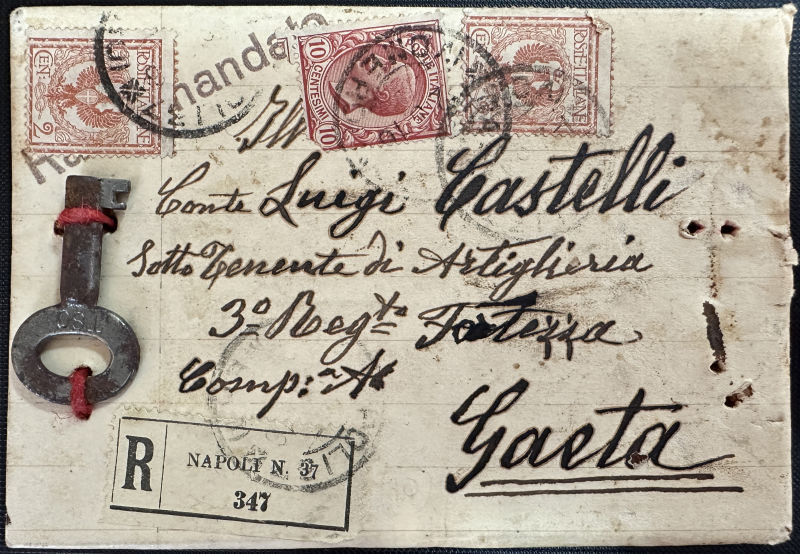 POSTE ITALIANE
CENT. 2
Raccomandato
POSTE ITALIANE
10 CENTESIMI 10
POSTE ITALIANE
Ill
Conte Luigi Castelli
Sotto Tenente di Artiglieria
3º Regto Fortezza
Comp:a
Gaeta
R
NAPOLI N. 37
347